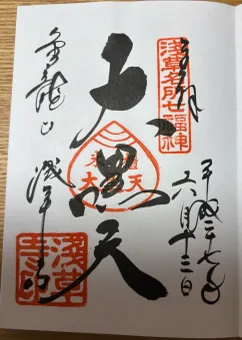 奉拝
浅草名所七福神
平成二十七年
六月十三日
大黒天
金龍山
浅草寺
浅草寺印